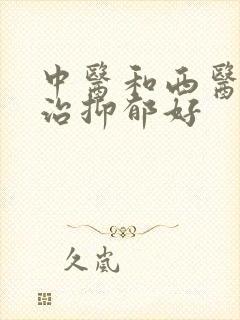 中醫和西醫
治抑郁好
久嵐